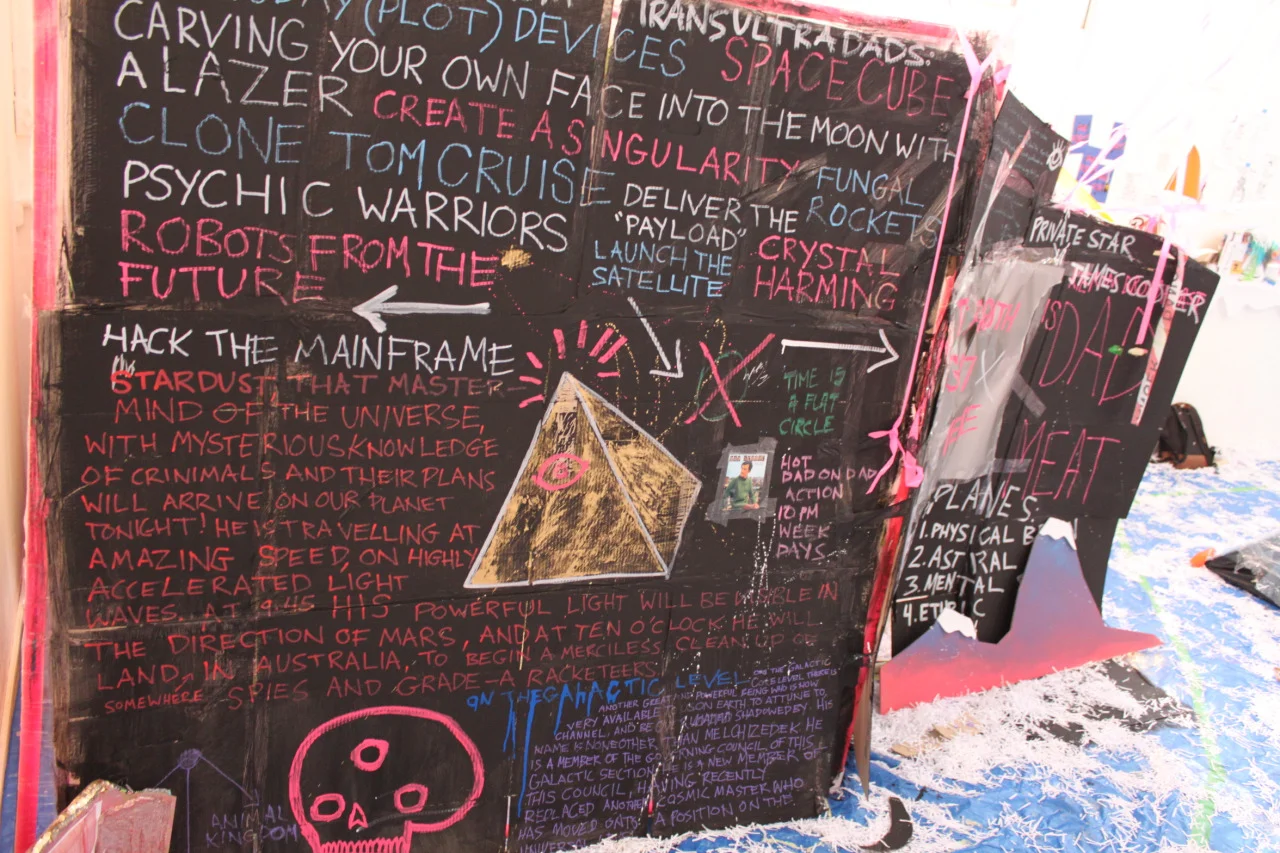 DAY (PLOT) DEVICES
TRANSULTRADADS:
CARVING YOUR OWN FACE INTO THE MOON WITH
SPACE CUBE
A LAZER CREATE A SINGULARITY
CLONE TOM CRUISE
FUNGAL
ROCKETS
PSYCHIC WARRIORS
DELIVER THE
"PAYLOAD"
ROBOTS FROM THE
FUTURE
LAUNCH THE
SATELLITE
CRYSTAL
HARMING
HACK THE MAINFRAME
STARDUST THAT MASTER-
MIND OF THE UNIVERSE,
WITH MYSTERIOUS KNOWLEDGE
OF CRINIMALS AND THEIR PLANS
WILL ARRIVE ON OUR PLANET
TONIGHT! HE IS TRAVELLING AT
AMAZING SPEED, ON HIGHLY
ACCELERATED LIGHT
WAVES. AT 9.45 HIS POWERFUL LIGHT WILL BE VISIBLE IN
THE DIRECTION OF MARS, AND AT TEN O'CLOCK HE WILL
LAND, IN AUSTRALIA, TO BEGIN A MERCILESS CLEAN UP OF
SOMEWHERE SPIES AND GRADE-A RACKETEERS
TIME IS
A FLAT
CIRCLE
HOT
DAD ON DAD
ACTION
10 PM
WEEK
DAYS
ON THE GALACTIC LEVEL
ANOTHER GREAT AND POWERFUL BEING WHO IS NOW
VERY AVAILABLE ON EARTH TO ATTUNE TO,
CHANNEL, AND BE
NAME IS NONE OTHER MELCHIZEDEK HE
IS A MEMBER OF THE COUNCIL OF THIS
GALACTIC SECTOR IS A NEW MEMBER OF
THIS COUNCIL, HAVING RECENTLY
REPLACED ANOTHER COSMIC MASTER WHO
HAS MOVED A POSITION ON THE
ANIMAL
KINGDOM
PRIVATE STAR
JAMES COOPER
IS
DAD
MEAT
PLANES:
1. PHYSICAL
2. ASTRAL
3. MENTAL
4. ETHRIC